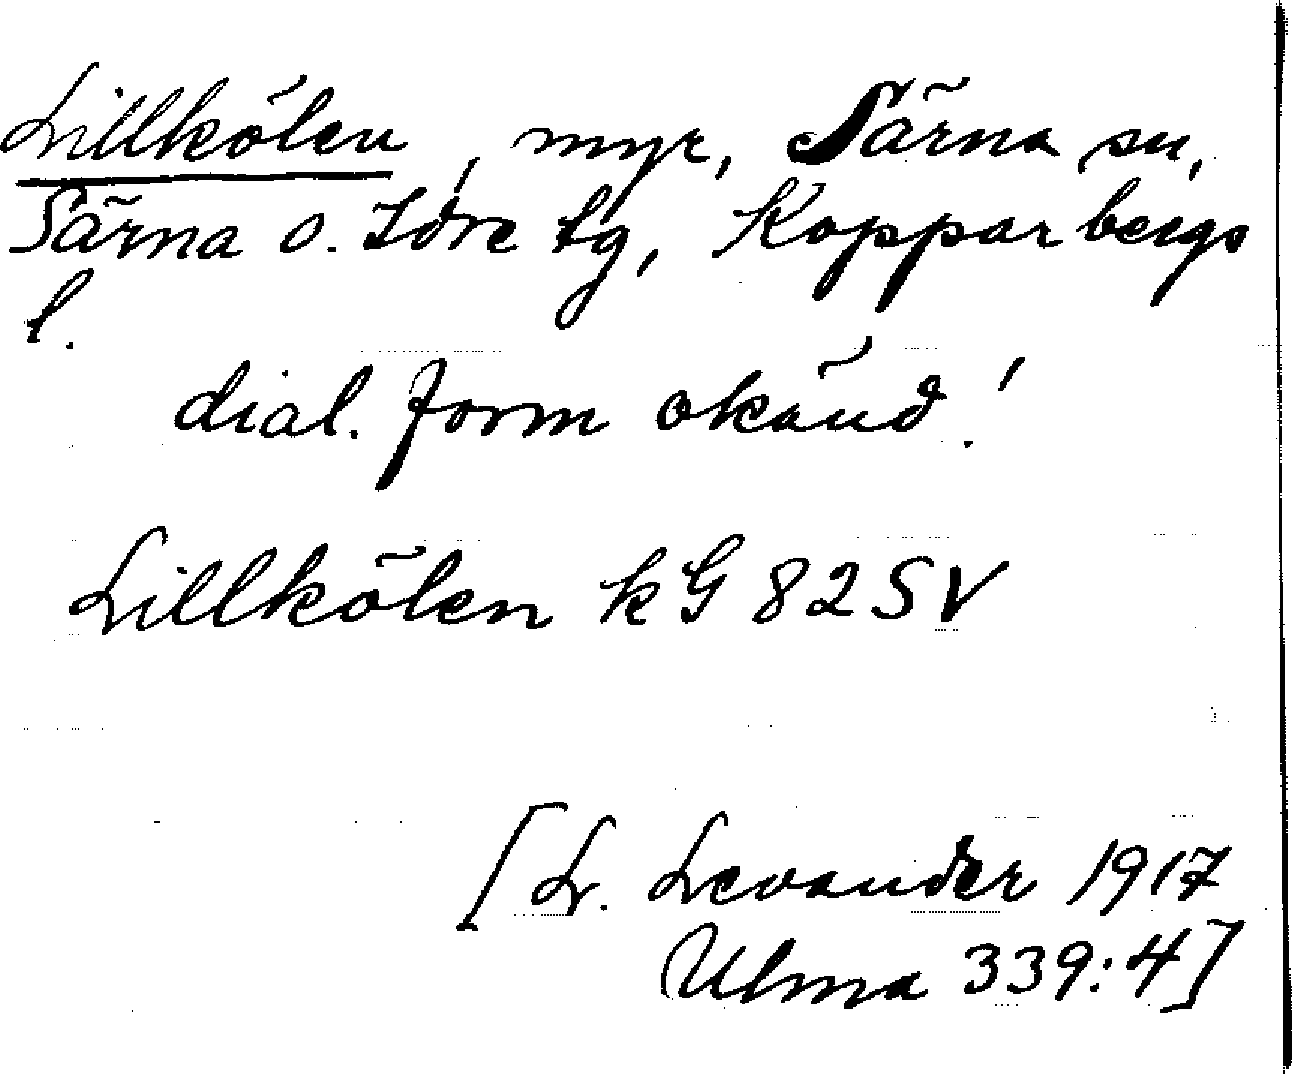 Lillkölen, myr, Särna sn,
Särna o. Idre tg, Kopparbergs
l.
dial. form okänd!
Lillkölen kG 82 SV
[L. Levander 1917
Ulma 339:4]